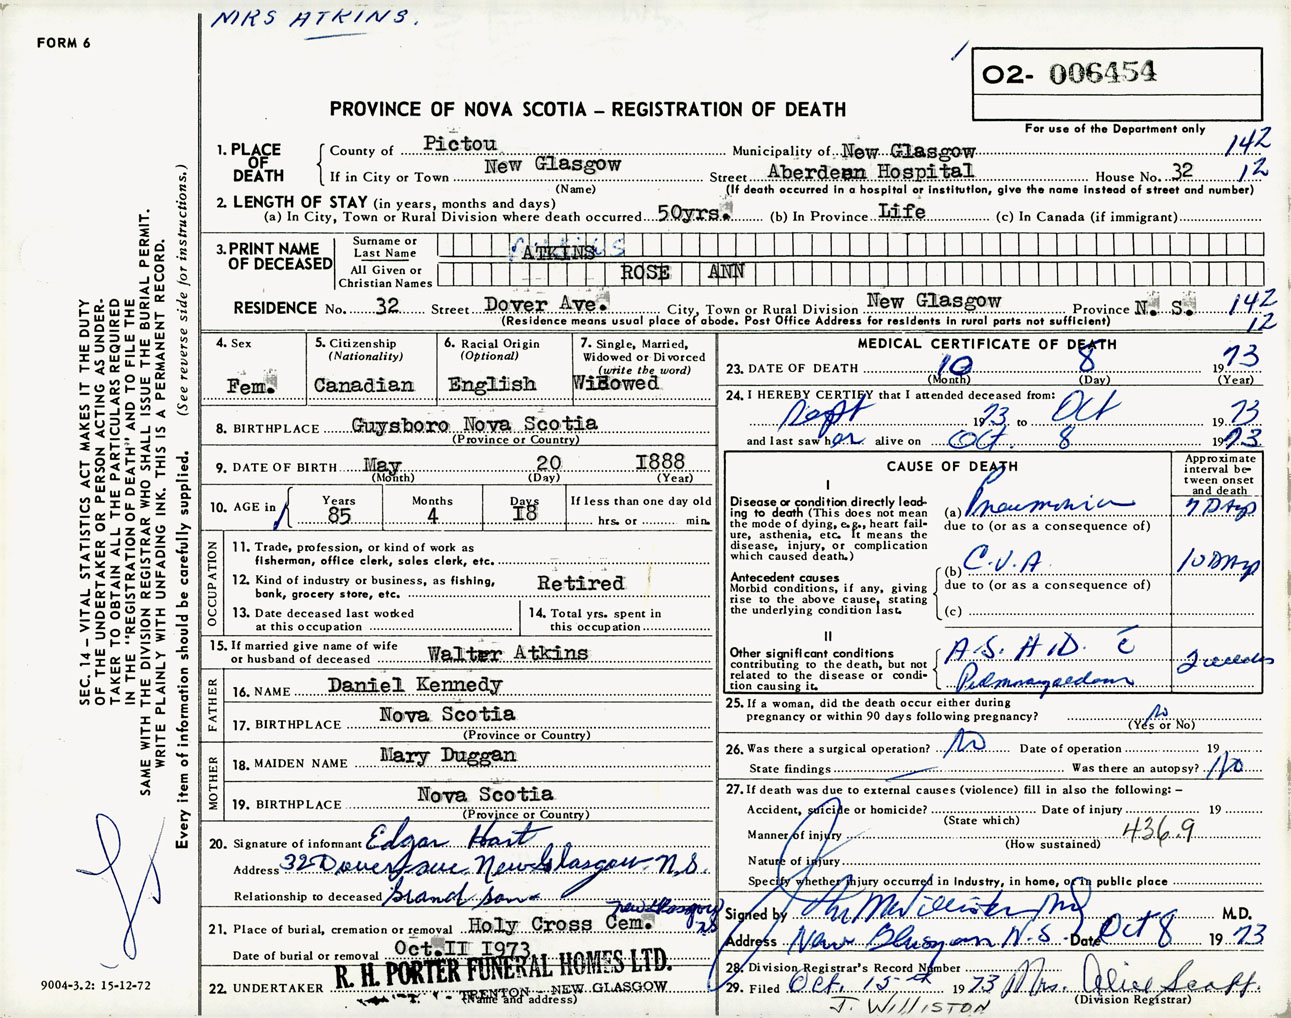 MRS ATKINS.
FORM 6
O2- 006454
PROVINCE OF NOVA SCOTIA – REGISTRATION OF DEATH
For use of the Department only
1. PLACE OF DEATH
County of Pictou Municipality of New Glasgow 142
If in City or Town New Glasgow Street Aberdean Hospital House No. 32 12
(Name) (If death occurred in a hospital or institution, give the name instead of street and number)
2. LENGTH OF STAY (in years, months and days)
(a) In City, Town or Rural Division where death occurred 50yrs. (b) In Province Life (c) In Canada (if immigrant)
3. PRINT NAME OF DECEASED
Surname or Last Name ATKINS
All Given or Christian Names ROSE ANN
RESIDENCE No. 32 Street Dover Ave. City, Town or Rural Division New Glasgow Province N. S. 142
(Residence means usual place of abode. Post Office Address for residents in rural parts not sufficient) 12
4. Sex
Fem.
5. Citizenship
(Nationality)
Canadian
6. Racial Origin
(Optional)
English
7. Single, Married,
Widowed or Divorced
(write the word)
Widowed
8. BIRTHPLACE Guysboro Nova Scotia
(Province or Country)
9. DATE OF BIRTH May 20 I888
(Month) (Day) (Year)
10. AGE in
Years Months Days If less than one day old
85 4 I8 hrs. or min.
OCCUPATION
11. Trade, profession, or kind of work as
fisherman, office clerk, sales clerk, etc.
12. Kind of industry or business, as fishing,
bank, grocery store, etc. Retired
13. Date deceased last worked
at this occupation
14. Total yrs. spent in
this occupation
15. If married give name of wife
or husband of deceased Walter Atkins
FATHER
16. NAME Daniel Kennedy
17. BIRTHPLACE Nova Scotia
(Province or Country)
MOTHER
18. MAIDEN NAME Mary Duggan
19. BIRTHPLACE Nova Scotia
(Province or Country)
20. Signature of informant Edgar Hart
Address 32 Dover ave New Glasgow N.S.
Relationship to deceased Grand son
21. Place of burial, cremation or removal Holy Cross Cem. New Glasgow N.S
Date of burial or removal Oct. II I973
22. UNDERTAKER R. H. PORTER FUNERAL HOMES LTD.
TRENTON - NEW GLASGOW
(Name and address)
MEDICAL CERTIFICATE OF DEATH
23. DATE OF DEATH 10 8 1973
(Month) (Day) (Year)
24. I HEREBY CERTIFY that I attended deceased from:
Sept 1973 to Oct 1973
and last saw her alive on Oct. 8 1973
CAUSE OF DEATH
Approximate
interval be-
tween onset
and death
I
Disease or condition directly lead-
ing to death (This does not mean
the mode of dying, e.g., heart fail-
ure, asthenia, etc. It means the
disease, injury, or complication
which caused death.)
(a) Pneumonia 7 Days
due to (or as a consequence of)
Antecedent causes
Morbid conditions, if any, giving
rise to the above cause, stating
the underlying condition last.
(b) C.V.A 10 Days
due to (or as a consequence of)
(c)
II
Other significant conditions
contributing to the death, but not
related to the disease or condi-
tion causing it.
A.S.H.D. c̄
Pulmonary edema
2 weeks
25. If a woman, did the death occur either during
pregnancy or within 90 days following pregnancy? No
(Yes or No)
26. Was there a surgical operation? No Date of operation 19
State findings Was there an autopsy? No
27. If death was due to external causes (violence) fill in also the following: –
Accident, suicide or homicide? Date of injury 19
(State which)
Manner of injury 436.9
(How sustained)
Nature of injury
Specify whether injury occurred in Industry, in home, or in public place
Signed by M.D.
Address New Glasgow N.S Date Oct 8 1973
28. Division Registrar's Record Number
29. Filed Oct. 15th 1973 Mrs. Alice Scaff.
(Division Registrar)
J. WILLISTON
SEC. 14 – VITAL STATISTICS ACT MAKES IT THE DUTY
OF THE UNDERTAKER OR PERSON ACTING AS UNDER-
TAKER TO OBTAIN ALL THE PARTICULARS REQUIRED
IN THE "REGISTRATION OF DEATH" AND TO FILE THE
SAME WITH THE DIVISION REGISTRAR WHO SHALL ISSUE THE BURIAL PERMIT.
WRITE PLAINLY WITH UNFADING INK. THIS IS A PERMANENT RECORD.
Every item of information should be carefully supplied. (See reverse side for instructions.)
9004-3.2: 15-12-72